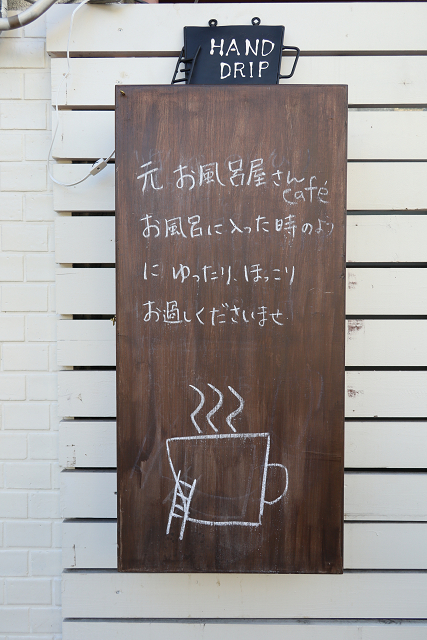 HAND
DRIP
元 お風呂屋さん
café
お風呂に入った時のよう
に ゆったり、ほっこり
お過しくださいませ